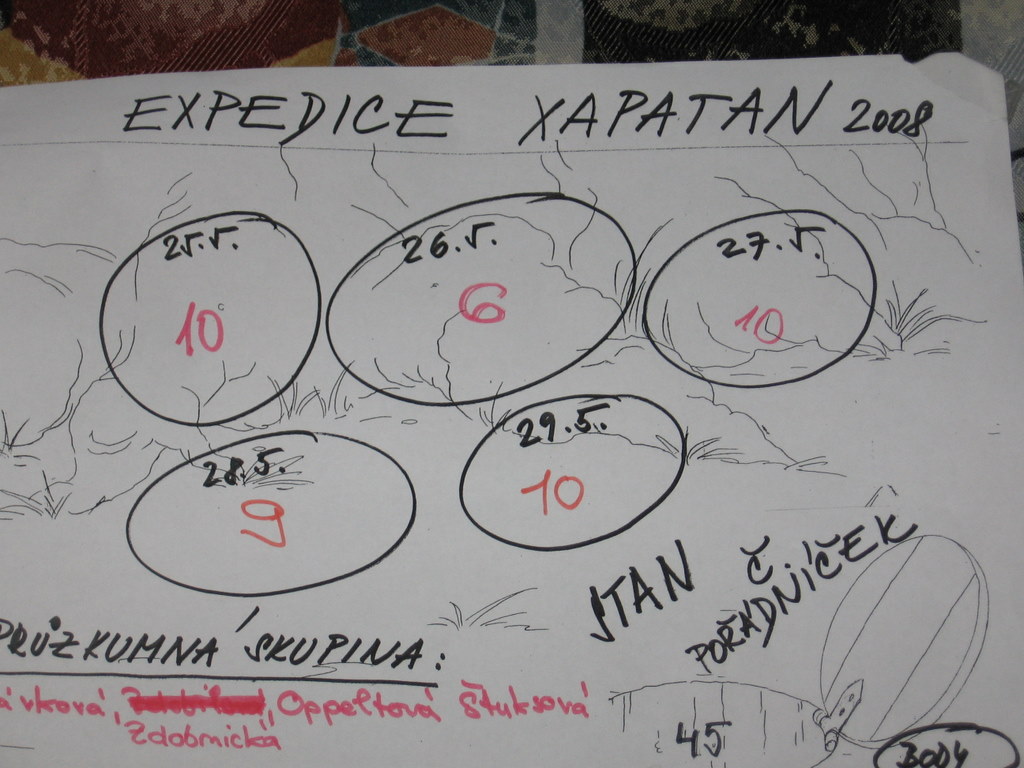 EXPEDICE XAPATAN 2008
25.5. 26.5. 27.5.
10 6 10
28.5. 29.5.
9 10
STAN Č.
POŘÁDNÍČEK
PRŮZKUMNÁ SKUPINA:
ávková, Oppeltová Štuksová
Zdobnická
45
BODY